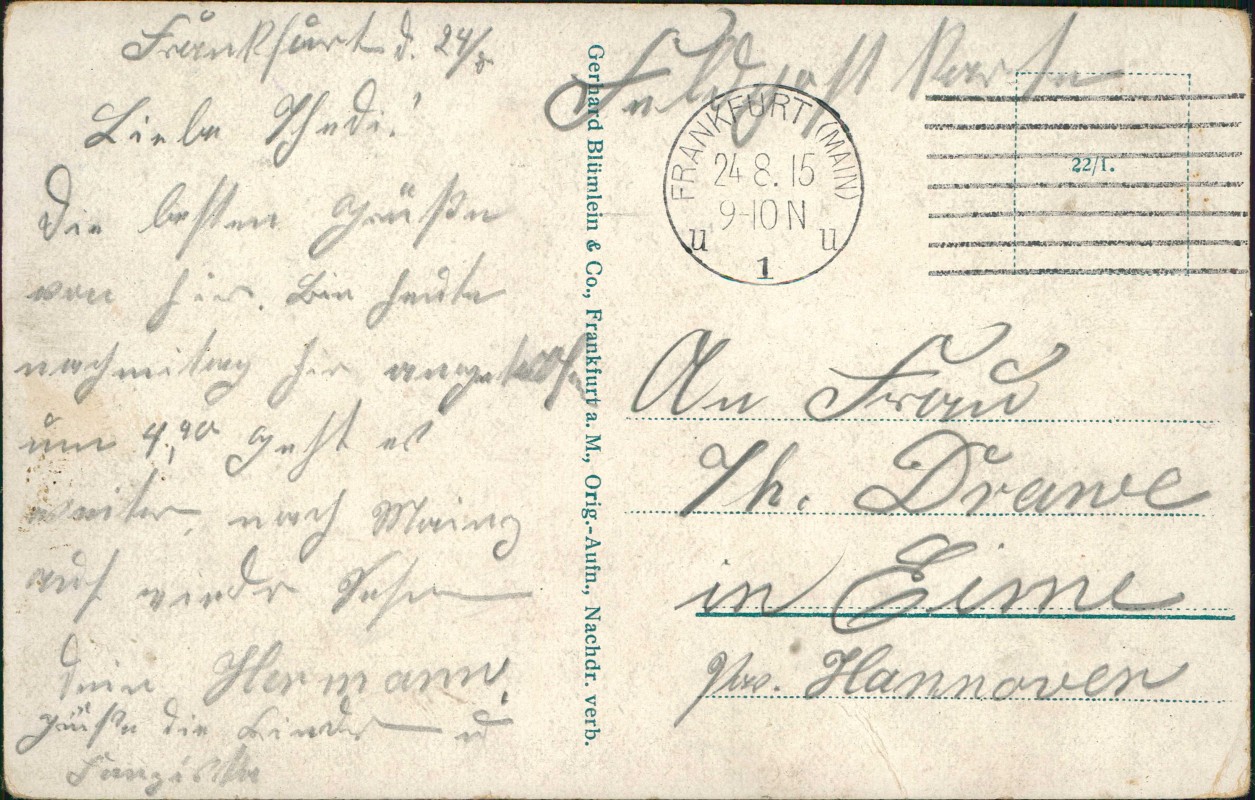 Frankfurt d. 24/8
Liebe Thedi!
Die besten Grüße
von hir. Bin heute
nachmitag hir angekom
um 4,40 geht es
weiter, nach Mainz
auf wieder Sehn
Dein Hermann,
grüße die Kinder u
Franziska
Gerhard Blümlein & Co., Frankfurt a. M., Orig.-Aufn., Nachdr. verb.
Feldpost Karte
FRANKFURT (MAIN)
24 8. 15
9-10 N
u 1 u
22/1.
An Frau
Th. Drawe
in Eime
Prov. Hannover